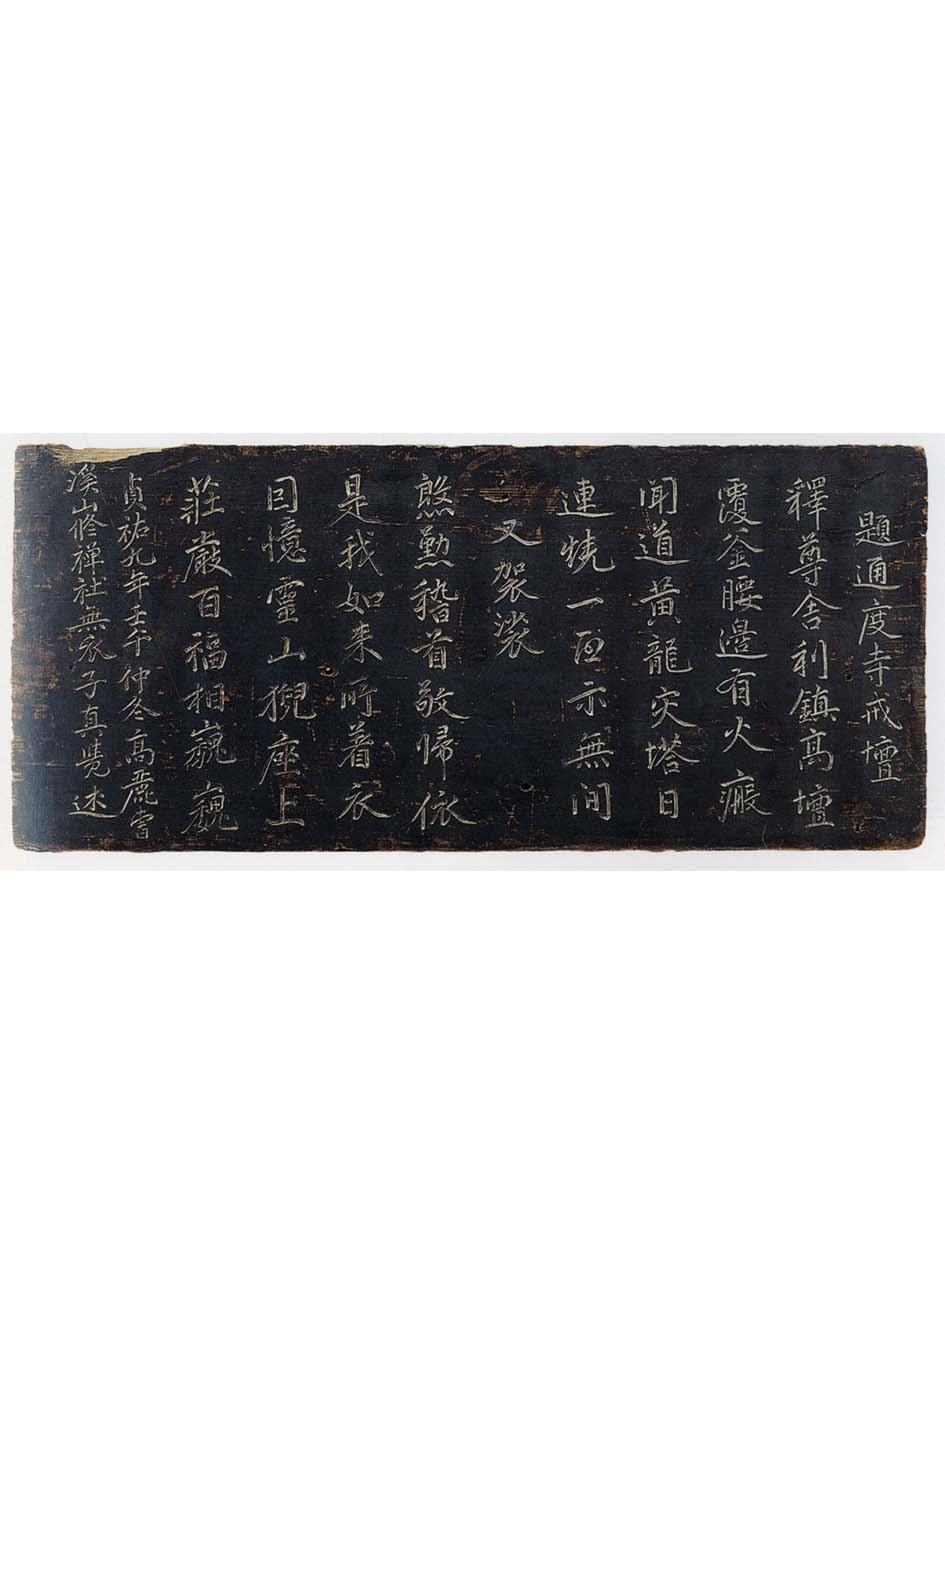 題通度寺戒壇
釋尊舍利鎮高壇
覆釜腰邊有火瘢
聞道黃龍災塔日
連燒一面示無間
又袈裟
慇懃稽首敬歸依
是我如来所着衣
因憶靈山猊座上
莊嚴百福相巍巍
貞祐九年壬午仲冬高麗曹
溪山修禅社無衣子真覺述